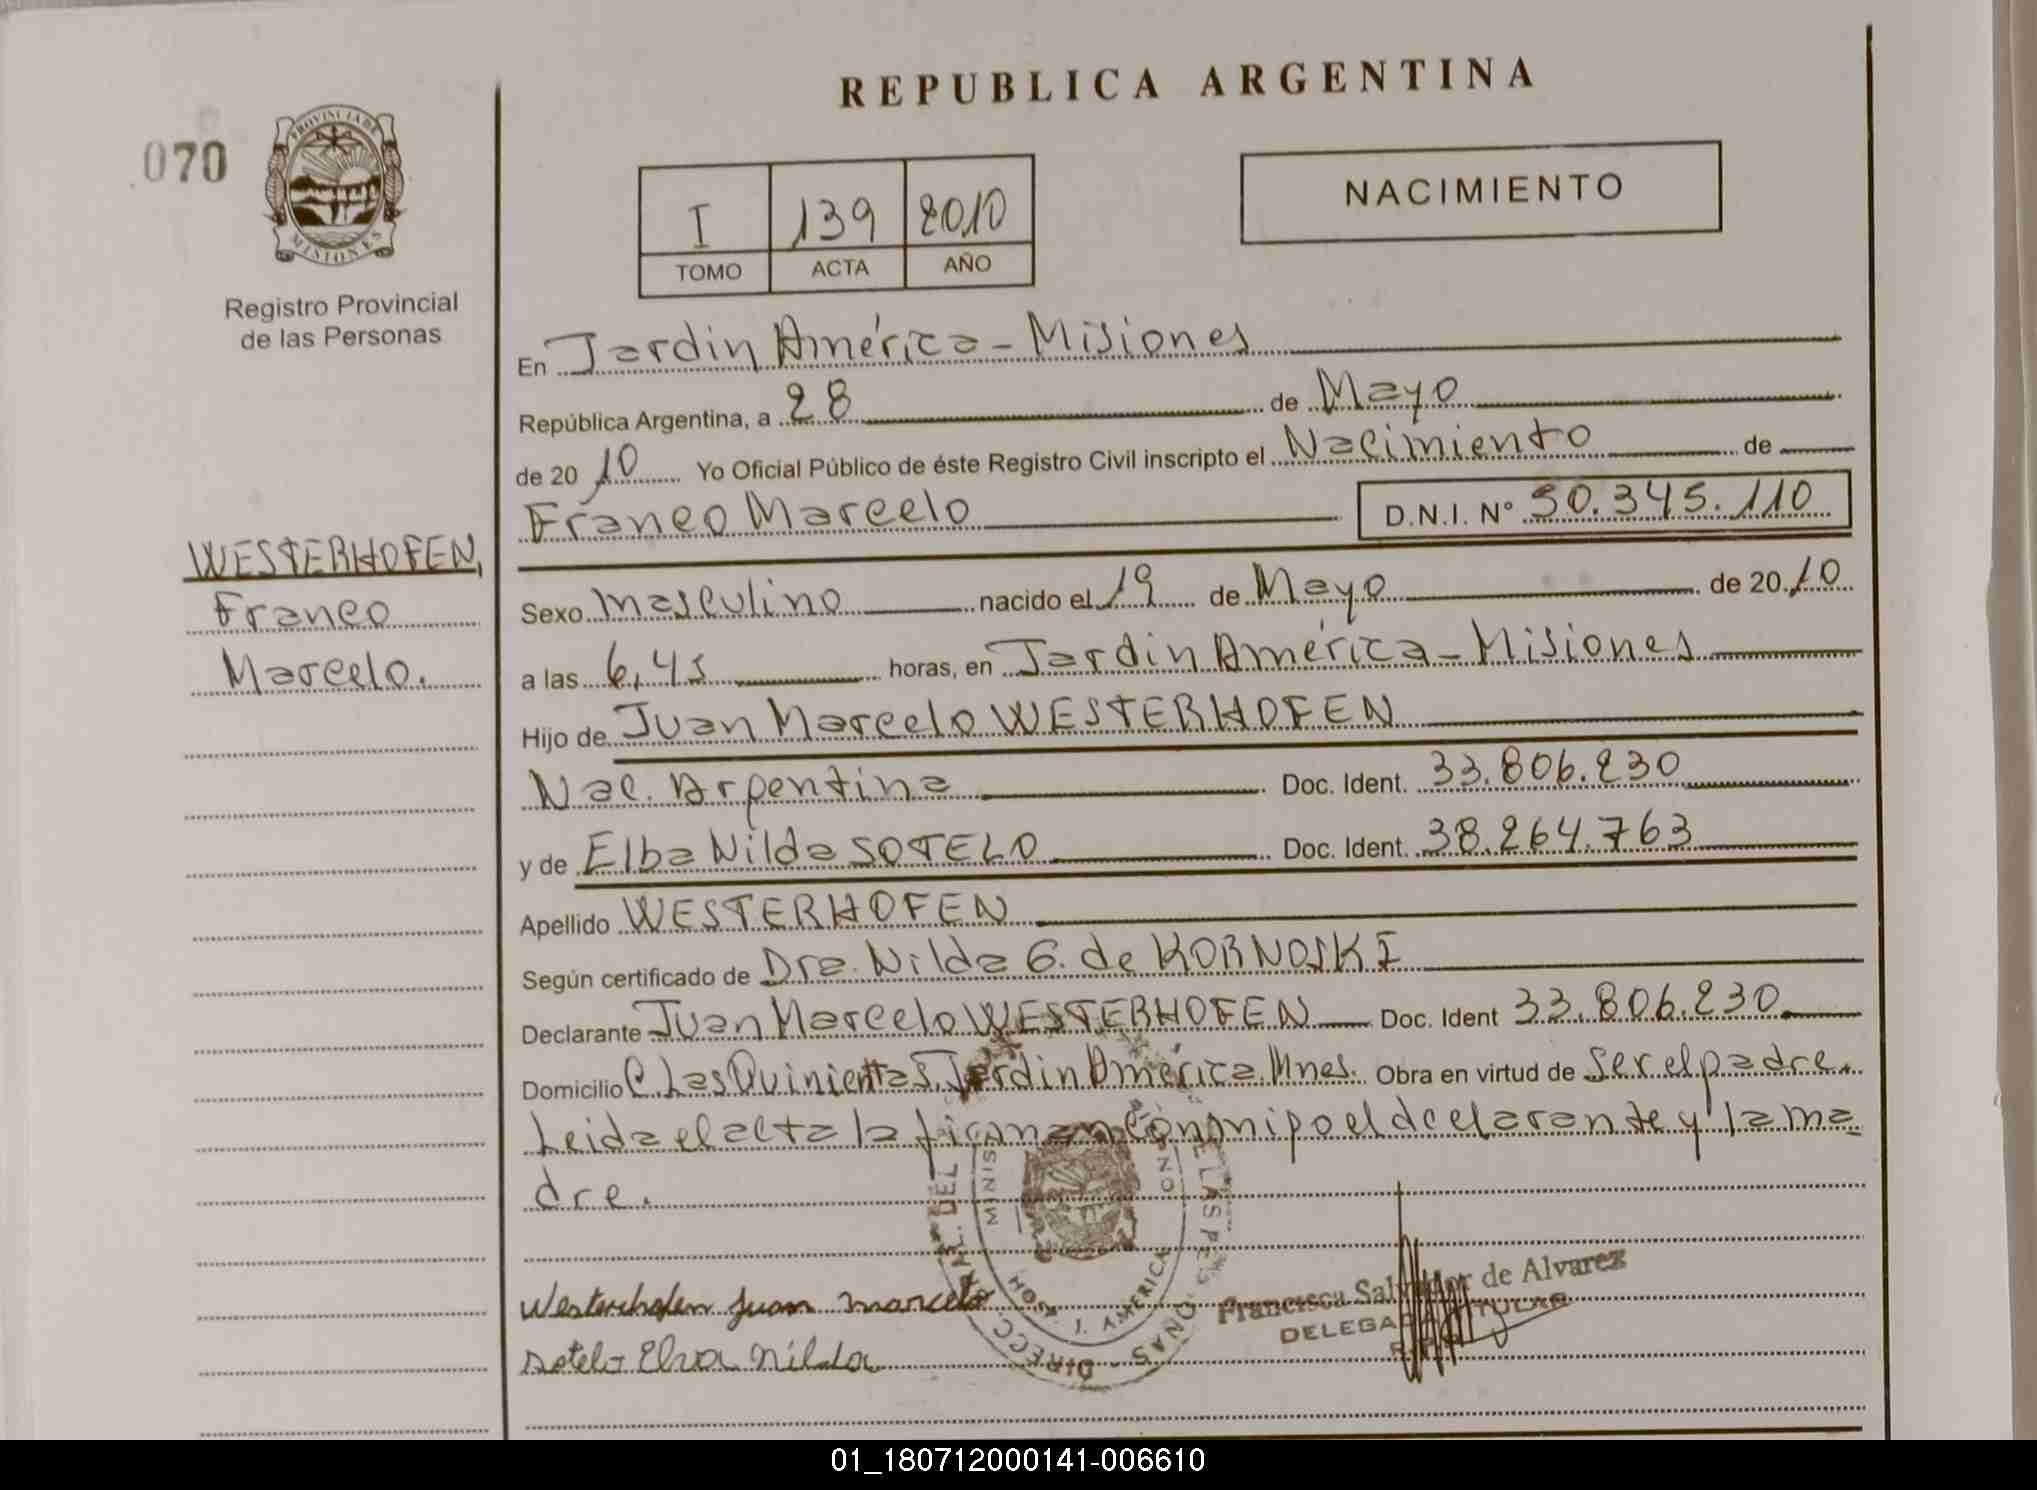 REPUBLICA ARGENTINA
070
PROVINCIA DE
MISIONES
Registro Provincial
de las Personas
I 139 2010
TOMO ACTA AÑO
NACIMIENTO
En Jardin América - Misiones
República Argentina, a 28 de Mayo
de 20 10 Yo Oficial Público de éste Registro Civil inscripto el Nacimiento de
Franco Marcelo D.N.I. Nº 50.345.110
WESTERHOFEN,
Franco
Marcelo.
Sexo masculino nacido el 19 de Mayo de 20 10
a las 6,45 horas, en Jardin América - Misiones
Hijo de Juan Marcelo WESTERHOFEN
Nac. Argentina Doc. Ident. 33.806.230
y de Elba Nilda SOTELO Doc. Ident. 38.264.763
Apellido WESTERHOFEN
Según certificado de Dra. Nilda G. de KORNOSKI
Declarante Juan Marcelo WESTERHOFEN Doc. Ident 33.806.230
Domicilio C. Las Quinientas. Jardin América. Mnes. Obra en virtud de ser el padre.
Leida el acta la firman conmigo el declarante y la ma
dre.
Westerhofen Juan marcelo
Sotelo Elva nilda
Francisca Salvador de Alvarez
DELEGADA TITULAR
01_180712000141-006610